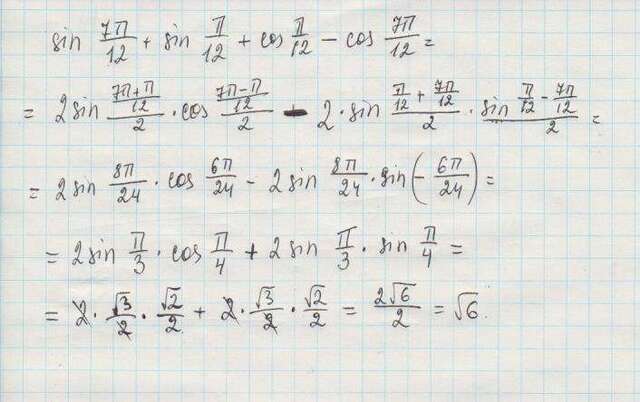 sin 7π/12 + sin π/12 + cos π/12 − cos 7π/12 =
= 2 sin ((7π+π)/12)/2 · cos ((7π−π)/12)/2 − 2 · sin (π/12 + 7π/12)/2 · sin (π/12 − 7π/12)/2 =
= 2 sin 8π/24 · cos 6π/24 − 2 sin 8π/24 · sin (− 6π/24) =
= 2 sin π/3 · cos π/4 + 2 sin π/3 · sin π/4 =
= 2 · √3/2 · √2/2 + 2 · √3/2 · √2/2 = 2√6/2 = √6.